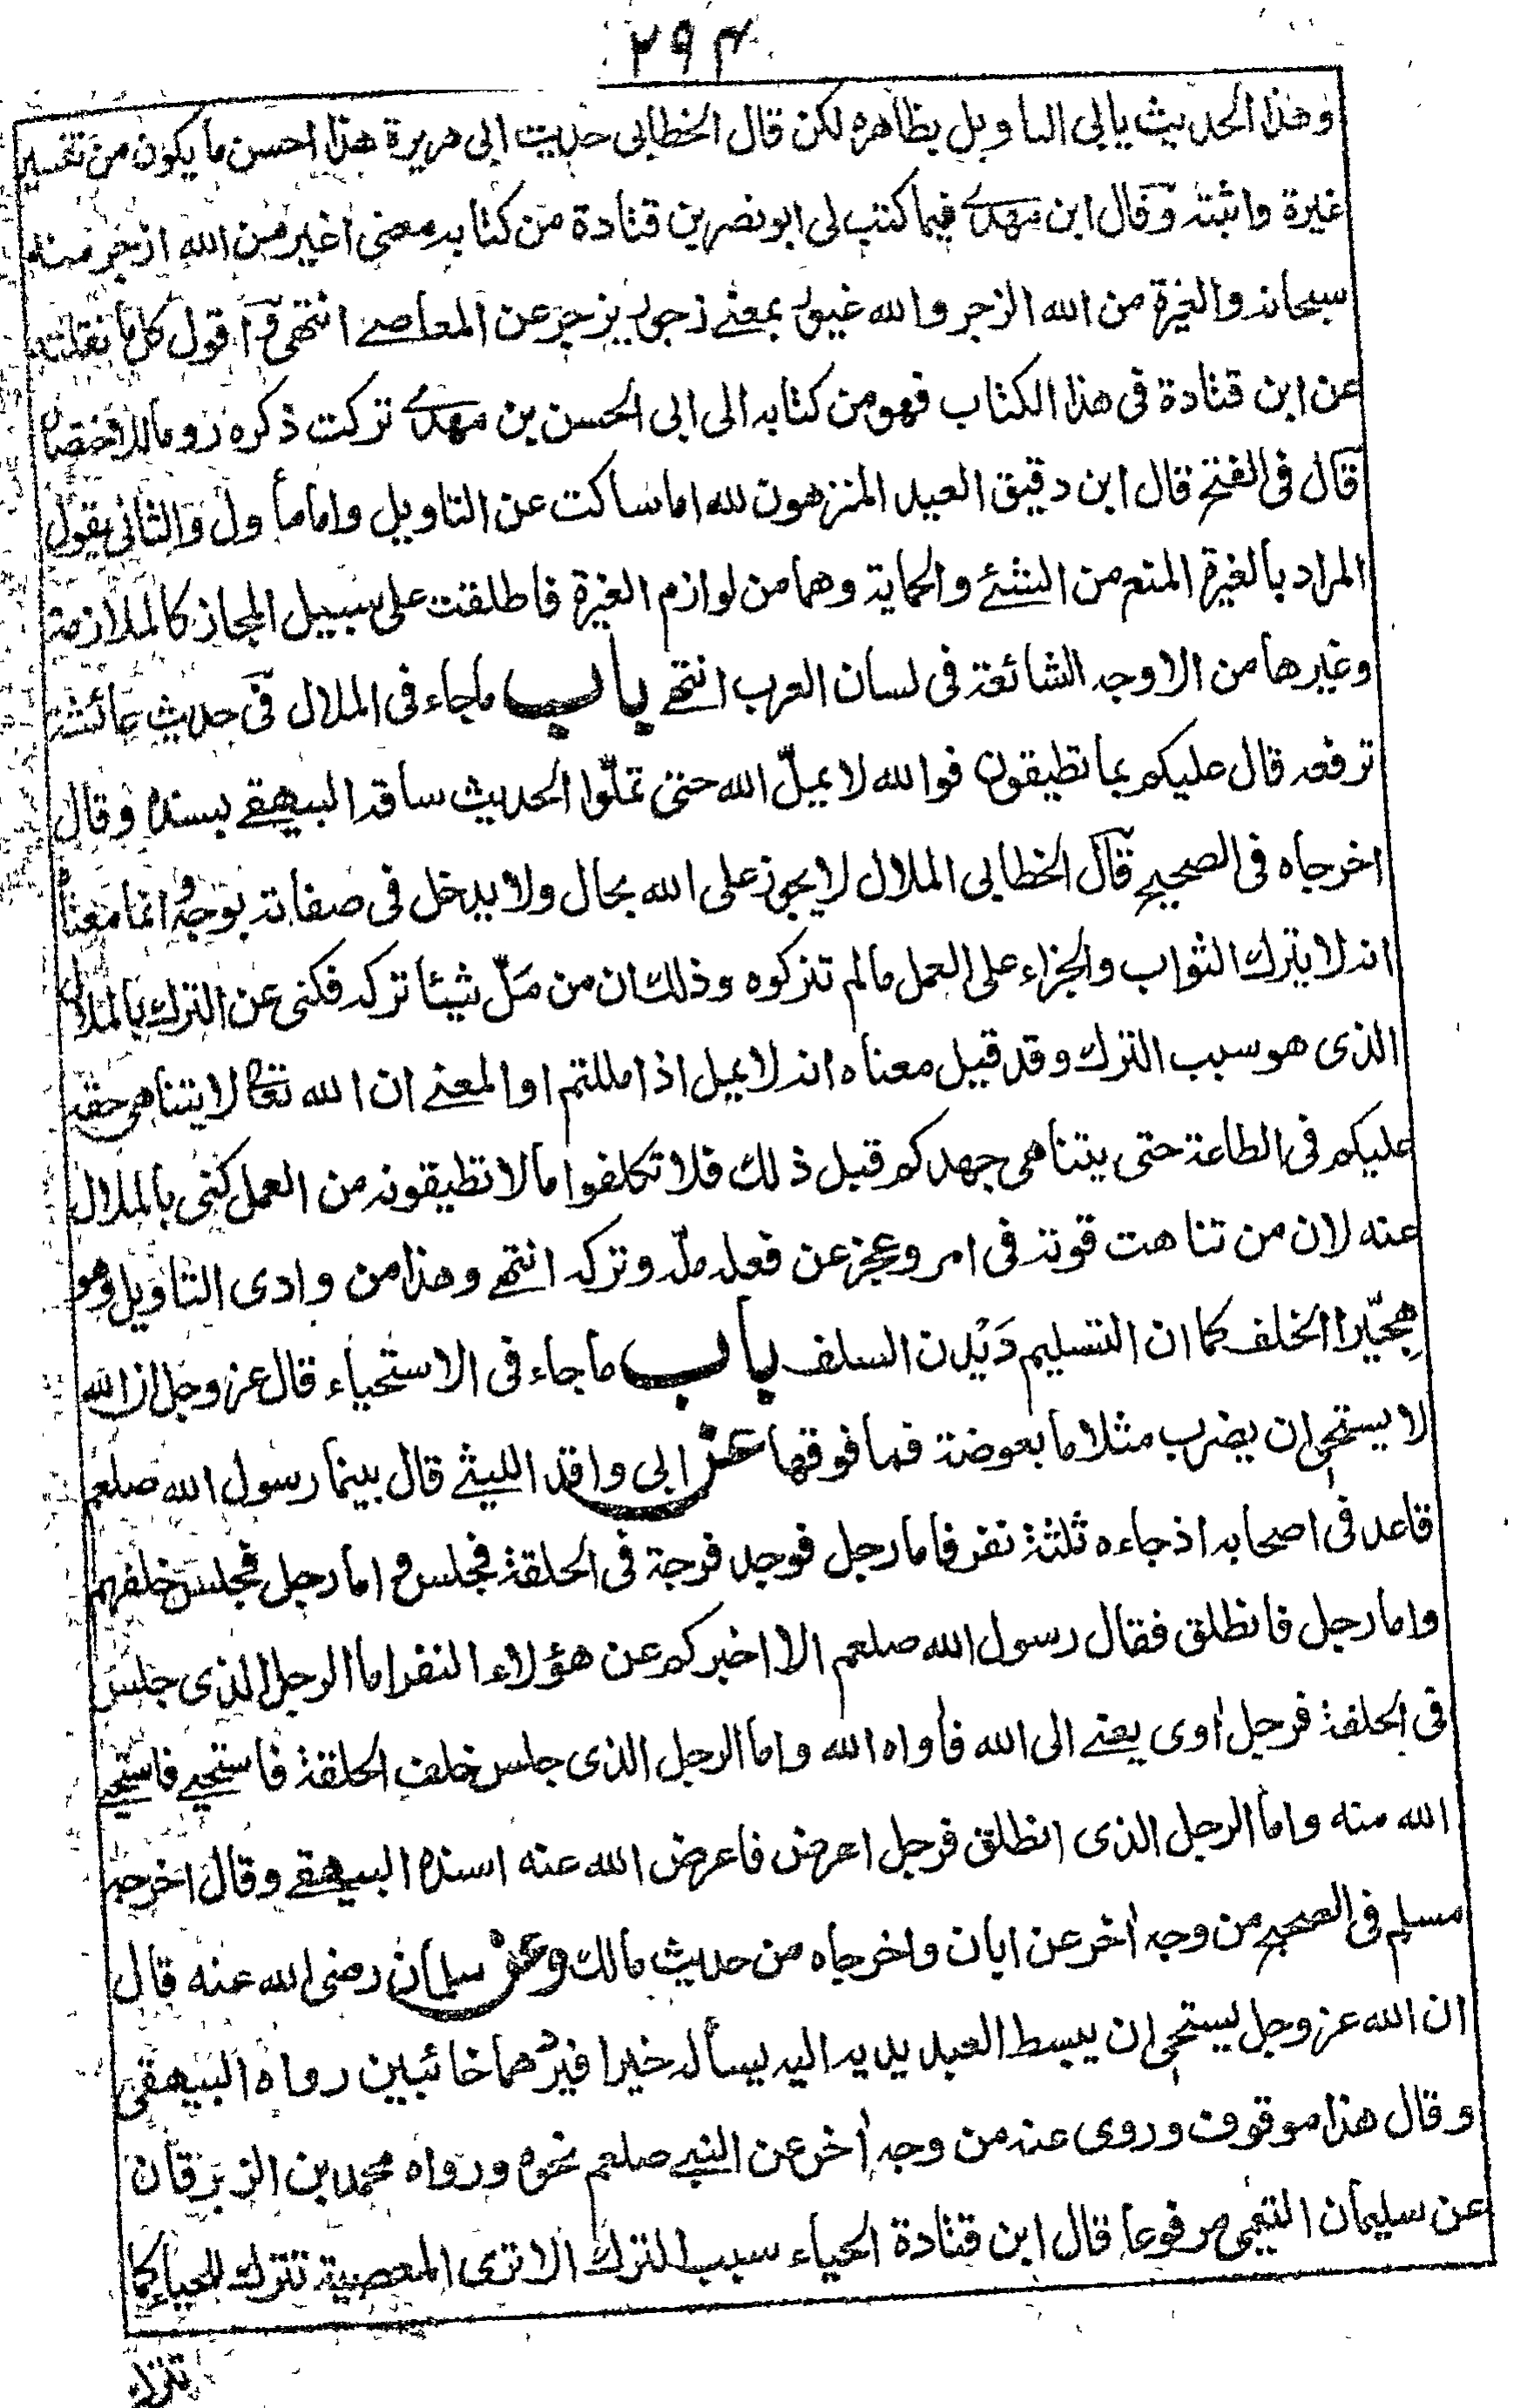 ٢٩٤
وهذا الحديث يابى التاويل بظاهره لكن قال الخطابى حديث ابى هريرة هذا احسن ما يكون من تفسير
غيرة واثبته وقال ابن مهدى فيما كتب لى ابو نصر بن قتادة من كتابه معنى اغير من الله ازجر منه
سبحانه والغيرة من الله الزجر والله غيور بمعنى زجور يزجر عن المعاصى انتهى واقول كل ما نقلته
عن ابن قتادة فى هذا الكتاب فهو من كتابه الى ابى الحسن بن مهدى تركت ذكره روما للاختصار
قال فى الفتح قال ابن دقيق العيد المنزهون لله اما ساكت عن التاويل واما مأول والثانى يقول
المراد بالغيرة المنع من الشئ والحماية وهما من لوازم الغيرة فاطلقت على سبيل المجاز كالملازمة
وغيرها من الاوجه الشائعة فى لسان العرب انتهى باب ماجاء فى الملال فى حديث عائشة
ترفعه قال عليكم بما تطيقون فوالله لا يملّ الله حتى تملّوا الحديث ساقه البيهقى بسنده وقال
اخرجاه فى الصحيح قال الخطابى الملال لا يجوز على الله بحال ولا يدخل فى صفاته بوجه وانما معناه
انه لا يترك الثواب والجزاء على العمل مالم تتركوه وذلك ان من مَلّ شيئا تركه فكنى عن الترك بالملال
الذى هو سبب الترك وقد قيل معناه انه لا يمل اذا مللتم او المعنى ان الله تعالى لا يتناهى حقه
عليكم فى الطاعة حتى يتناهى جهدكم قبل ذلك فلا تكلفوا مالا تطيقونه من العمل كنى بالملال
عنه لان من تناهت قوته فى امر وعجز عن فعله ملّه وتركه انتهى وهذا من وادى التاويل وهو
هِجّيرا الخلف كما ان التسليم دَيْدن السلف باب ماجاء فى الاستحياء قال عز وجل ان الله
لا يستحى ان يضرب مثلا ما بعوضة فما فوقها عن ابى واقد الليثى قال بينما رسول الله صلعم
قاعد فى اصحابه اذ جاءه ثلثة نفر فاما رجل فوجد فرجة فى الحلقة فجلس واما رجل فجلس خلفهم
واما رجل فانطلق فقال رسول الله صلعم الا اخبركم عن هؤلاء النفر اما الرجل الذى جلس
فى الحلقة فرجل اوى يعنى الى الله فأواه الله واما الرجل الذى جلس خلف الحلقة فاستحيى فاستحيى
الله منه واما الرجل الذى انطلق فرجل اعرض فاعرض الله عنه اسنده البيهقى وقال اخرجه
مسلم فى الصحيح من وجه أخر عن ابان واخرجاه من حديث مالك وعن سلمان رضى الله عنه قال
ان الله عز وجل يستحى ان يبسط العبد يديه اليه يسأله خيرا فيردّهما خائبين رواه البيهقى
وقال هذا موقوف وروى عنه من وجه أخر عن النبى صلعم نحوه ورواه محمد بن الزبرقان
عن سليمان التيمى مرفوعا قال ابن قتادة الحياء سبب للترك الا ترى المعصية تترك للحياء كما
تترك